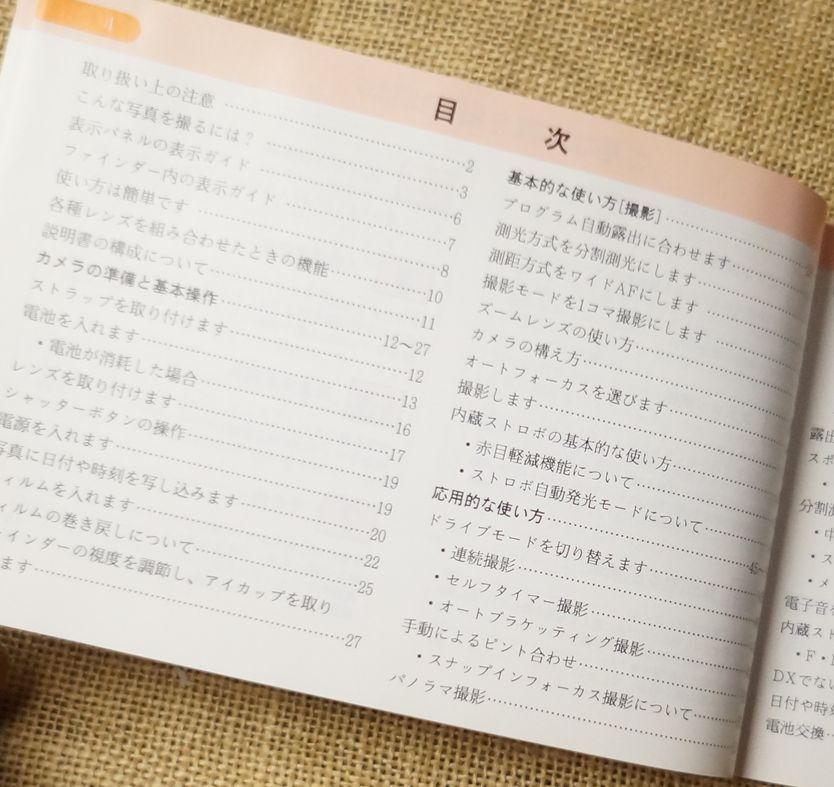 1
目次
取り扱い上の注意 …… 2
こんな写真を撮るには？ …… 3
表示パネルの表示ガイド …… 6
ファインダー内の表示ガイド …… 7
使い方は簡単です …… 8
各種レンズを組み合わせたときの機能 …… 10
説明書の構成について …… 11
カメラの準備と基本操作 …… 12～27
ストラップを取り付けます …… 12
電池を入れます …… 13
・電池が消耗した場合 …… 16
レンズを取り付けます …… 17
シャッターボタンの操作 …… 19
電源を入れます …… 19
写真に日付や時刻を写し込みます …… 20
ィルムを入れます …… 22
ィルムの巻き戻しについて …… 25
インダーの視度を調節し、アイカップを取り
ます …… 27
基本的な使い方[撮影] ……
プログラム自動露出に合わせます ……
測光方式を分割測光にします ……
測距方式をワイドAFにします ……
撮影モードを1コマ撮影にします ……
ズームレンズの使い方 ……
カメラの構え方 ……
オートフォーカスを選びます ……
撮影します ……
内蔵ストロボの基本的な使い方 ……
・赤目軽減機能について ……
・ストロボ自動発光モードについて ……
応用的な使い方 ……
ドライブモードを切り替えます ……
・連続撮影 ……
・セルフタイマー撮影 ……
・オートブラケッティング撮影 ……
手動によるピント合わせ ……
・スナップインフォーカス撮影について ……
パノラマ撮影 ……
露出
スポ
分割測
・中
・ス
・メ
電子音を
内蔵スト
・F・
DXでない
日付や時刻
電池交換 ……